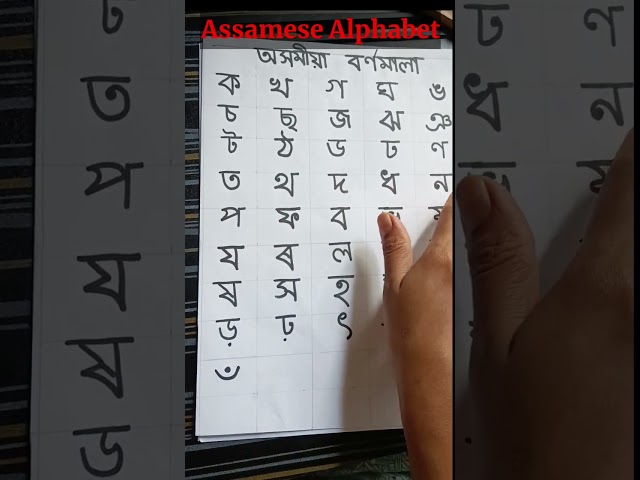 Assamese Alphabet
অসমীয়া বৰ্ণমালা
ক খ গ ঘ ঙ
চ ছ জ ঝ ঞ
ট ঠ ড ঢ ণ
ত থ দ ধ ন
প ফ ব
য ৰ ল
ষ স হ
ড় ঢ় ৎ
ঁ